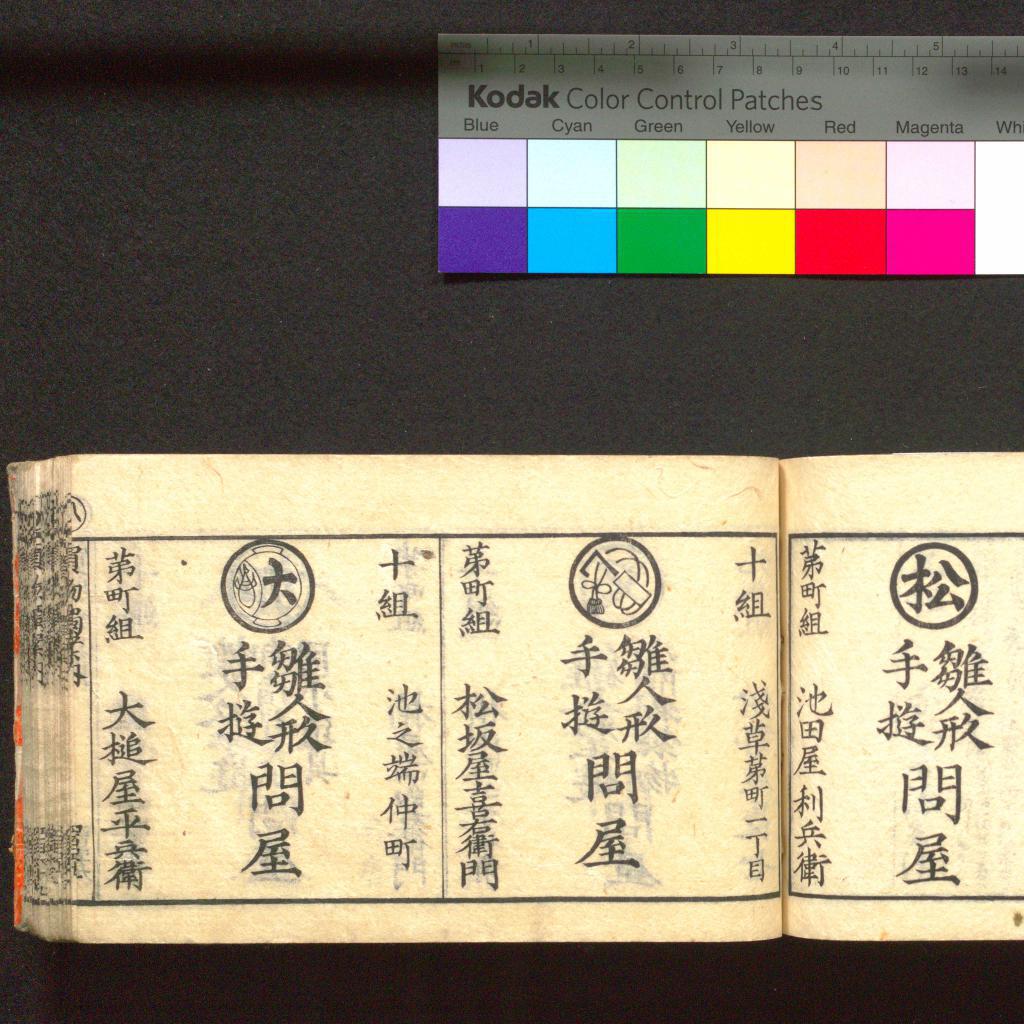 Kodak Color Control Patches
Blue Cyan Green Yellow Red Magenta Whi
1 2 3 4 5
1 2 3 4 5 6 7 8 9 10 11 12 13 14
松
雛人形
手遊
問屋
茅町組 池田屋利兵衛
十組 淺草茅町一丁目
雛人形
手遊
問屋
茅町組 松坂屋喜右衛門
十組 池之端仲町
大
雛人形
手遊
問屋
茅町組 大槌屋平兵衛